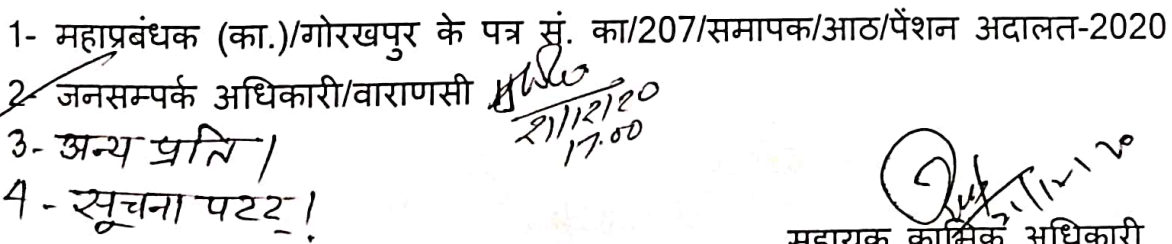 1- महाप्रबंधक (का.)/गोरखपुर के पत्र सं. का/207/समापक/आठ/पेंशन अदालत-2020
2- जनसम्पर्क अधिकारी/वाराणसी
21/12/20
17.00
3- अन्य प्रति।
4 - सूचना पटट।
21/12/20
सहायक कार्मिक अधिकारी